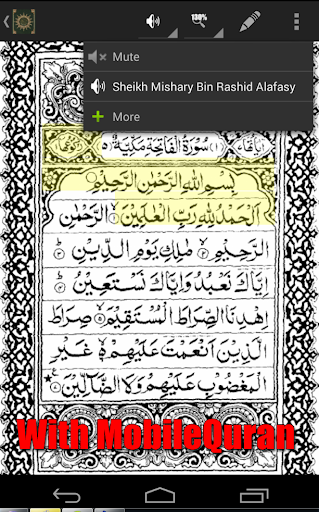 130%
Mute
Sheikh Mishary Bin Rashid Alafasy
More
سُوْرَةُ الْفَاتِحَةِ مَكِّيَّةٌ
بِسْمِ اللهِ الرَّحْمٰنِ الرَّحِيْمِ
اَلْحَمْدُ لِلّٰهِ رَبِّ الْعٰلَمِيْنَ ۙ۱ الرَّحْمٰنِ
الرَّحِيْمِ ۙ۲ مٰلِكِ يَوْمِ الدِّيْنِ ؕ۳
اِيَّاكَ نَعْبُدُ وَاِيَّاكَ نَسْتَعِيْنُ ؕ۴
اِهْدِنَا الصِّرَاطَ الْمُسْتَقِيْمَ ۙ۵ صِرَاطَ
الَّذِيْنَ اَنْعَمْتَ عَلَيْهِمْ ۙ۶ غَيْرِ
الْمَغْضُوْبِ عَلَيْهِمْ وَلَا الضَّآلِّيْنَ
With MobileQuran